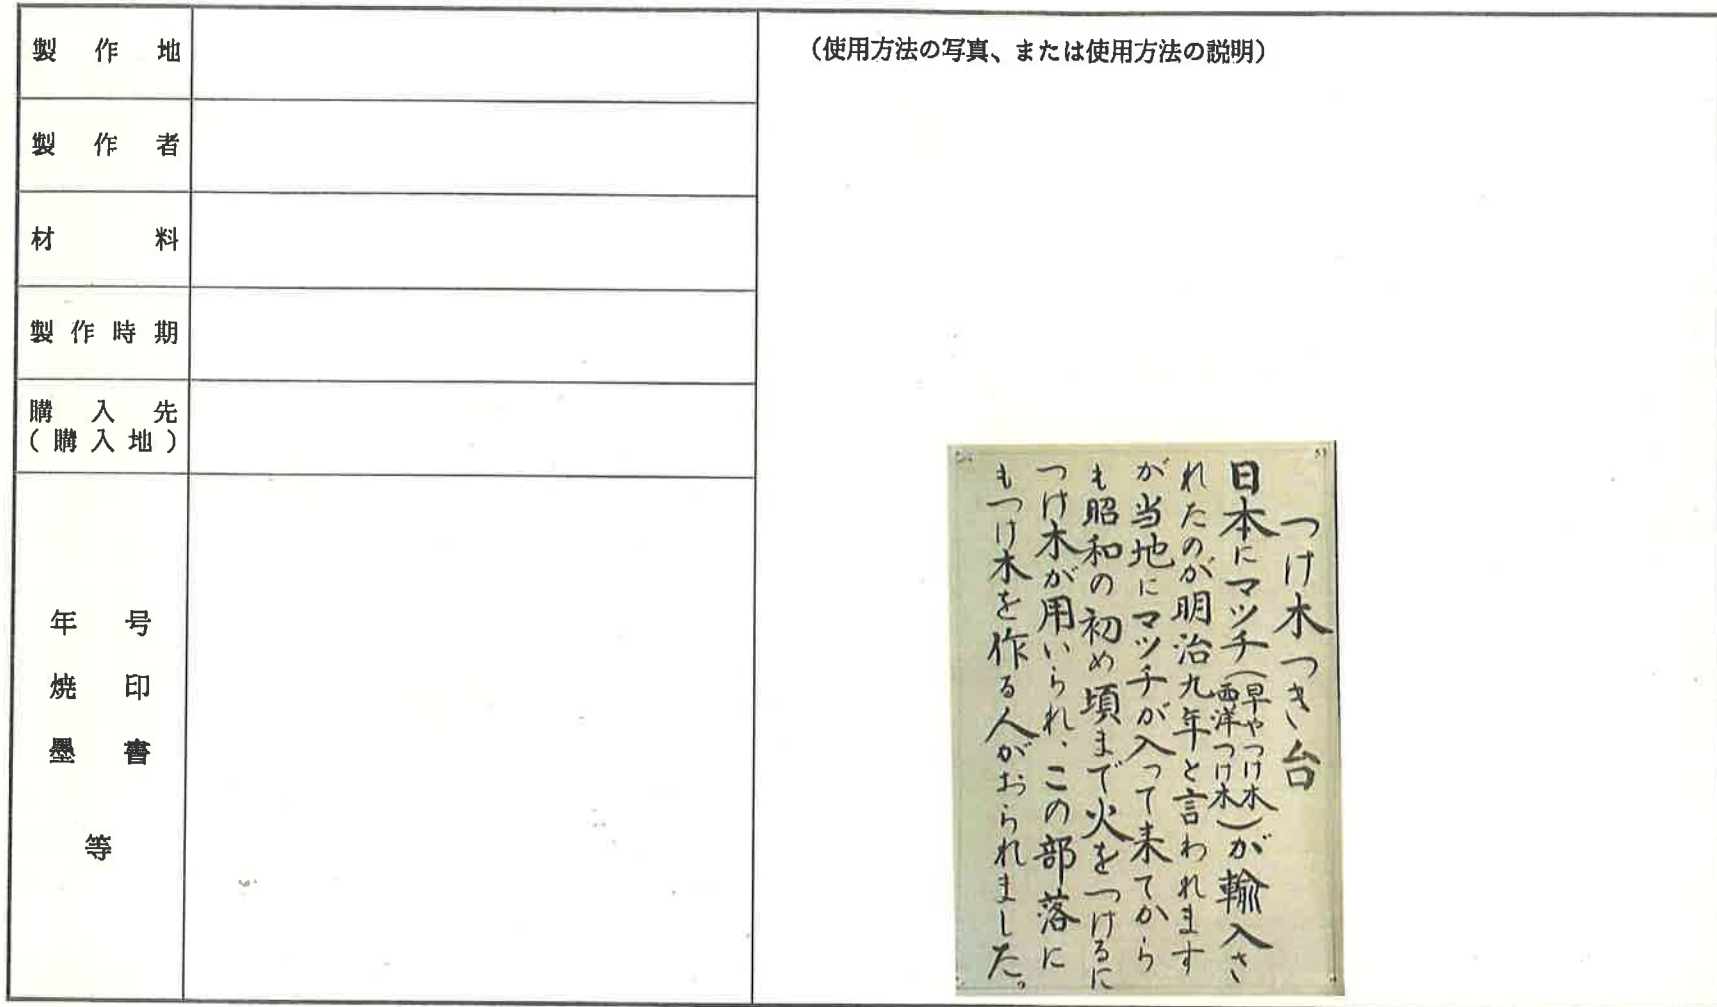 製作地
製作者
材料
製作時期
購入先
(購入地)
年号
焼印
墨書
等
(使用方法の写真、または使用方法の説明)
つけ木つき台
日本にマッチ(早やつけ木西洋つけ木)が輸入さ
れたのが明治九年と言われます
が当地にマッチが入って来てから
も昭和の初め頃まで火をつけるに
つけ木が用いられ、この部落に
もつけ木を作る人がおられました。